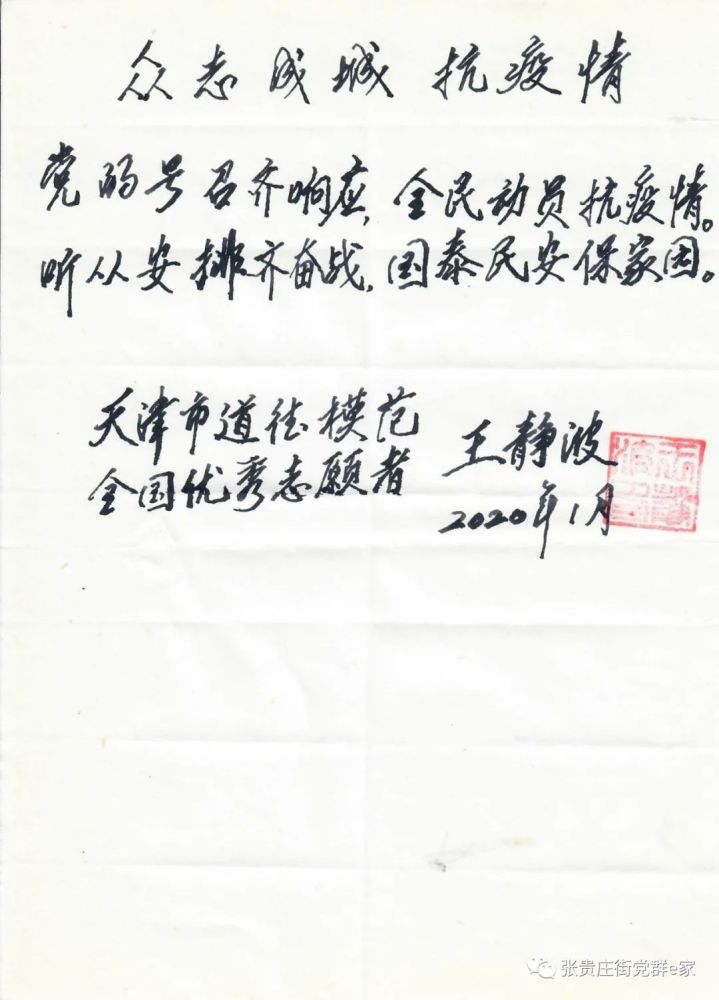 众志成城 抗疫情
党的号召齐响应,全民动员抗疫情。
听从安排齐奋战,国泰民安保家园。
天津市道德模范
全国优秀志愿者
王静波
2020年1月
张贵庄街党群e家